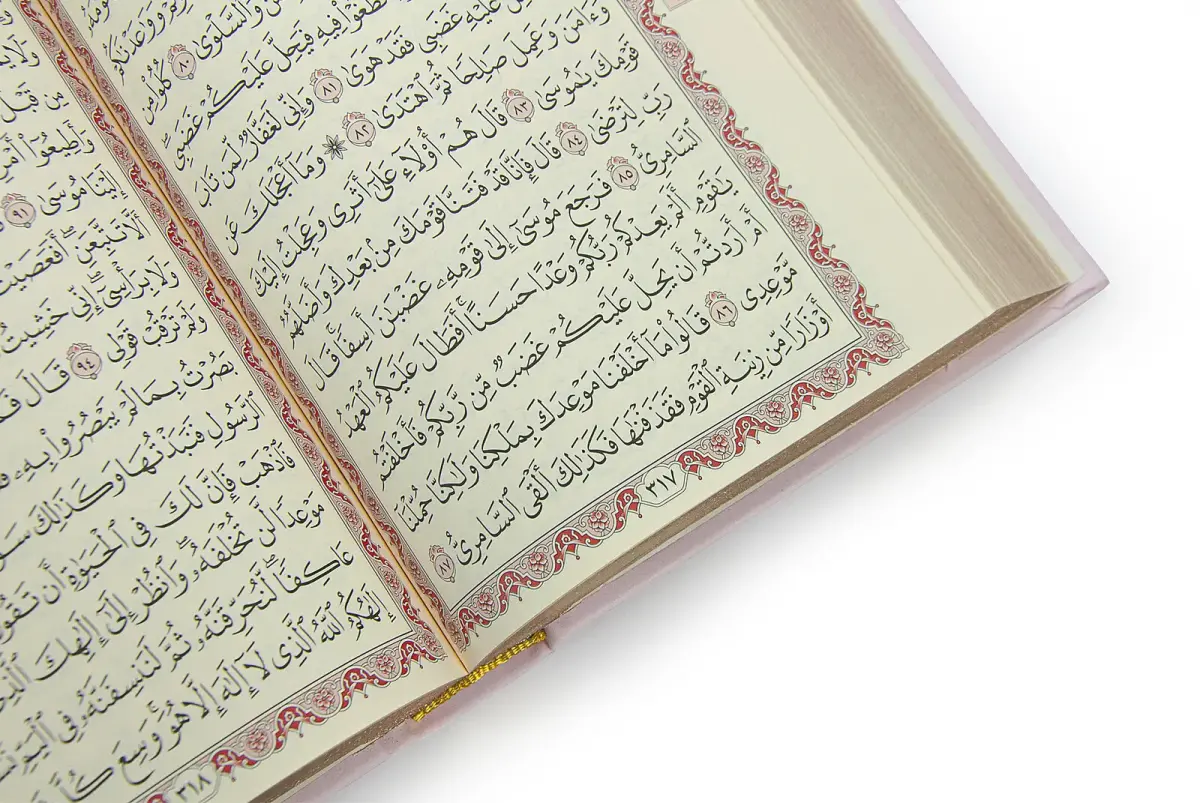 وَوَٰعَدْنَٰكُمْ
وَٱلسَّلْوَىٰ ٨٠ كُلُوا۟ مِن
تَطْغَوْا۟ فِيهِ فَيَحِلَّ عَلَيْكُمْ غَضَبِى
عَلَيْهِ غَضَبِى فَقَدْ هَوَىٰ ٨١ وَإِنِّى لَغَفَّارٌ لِّمَن تَابَ
وَءَامَنَ وَعَمِلَ صَٰلِحًا ثُمَّ ٱهْتَدَىٰ ٨٢ ۞ وَمَآ أَعْجَلَكَ عَن
قَوْمِكَ يَٰمُوسَىٰ ٨٣ قَالَ هُمْ أُو۟لَآءِ عَلَىٰٓ أَثَرِى وَعَجِلْتُ إِلَيْكَ
رَبِّ لِتَرْضَىٰ ٨٤ قَالَ فَإِنَّا قَدْ فَتَنَّا قَوْمَكَ مِنۢ بَعْدِكَ وَأَضَلَّهُمُ
ٱلسَّامِرِىُّ ٨٥ فَرَجَعَ مُوسَىٰٓ إِلَىٰ قَوْمِهِۦ غَضْبَٰنَ أَسِفًا ۚ قَالَ
يَٰقَوْمِ أَلَمْ يَعِدْكُمْ رَبُّكُمْ وَعْدًا حَسَنًا ۚ أَفَطَالَ عَلَيْكُمُ ٱلْعَهْدُ
أَمْ أَرَدتُّمْ أَن يَحِلَّ عَلَيْكُمْ غَضَبٌ مِّن رَّبِّكُمْ فَأَخْلَفْتُم
مَّوْعِدِى ٨٦ قَالُوا۟ مَآ أَخْلَفْنَا مَوْعِدَكَ بِمَلْكِنَا وَلَٰكِنَّا حُمِّلْنَآ
أَوْزَارًا مِّن زِينَةِ ٱلْقَوْمِ فَقَذَفْنَٰهَا فَكَذَٰلِكَ أَلْقَى ٱلسَّامِرِىُّ ٨٧
٣١٧
مِن قَبْلُ
وَأَطِيعُوٓا۟
إِلَيْنَا مُوسَىٰ ٩١
أَلَّا تَتَّبِعَنِ ۖ أَفَعَصَيْتَ
وَلَا بِرَأْسِىٓ ۖ إِنِّى خَشِيتُ
وَلَمْ تَرْقُبْ قَوْلِى ٩٤ قَالَ
بَصُرْتُ بِمَا لَمْ يَبْصُرُوا۟ بِهِۦ
ٱلرَّسُولِ فَنَبَذْتُهَا وَكَذَٰلِكَ
فَٱذْهَبْ فَإِنَّ لَكَ فِى ٱلْحَيَوٰةِ أَن تَقُولَ
مَوْعِدًا لَّن تُخْلَفَهُۥ ۖ وَٱنظُرْ إِلَىٰٓ إِلَٰهِكَ ٱلَّذِى
عَاكِفًا ۖ لَّنُحَرِّقَنَّهُۥ ثُمَّ لَنَنسِفَنَّهُۥ فِى ٱلْيَمِّ
إِلَٰهُكُمُ ٱللَّهُ ٱلَّذِى لَآ إِلَٰهَ إِلَّا هُوَ ۚ وَسِعَ كُلَّ
٣١٨